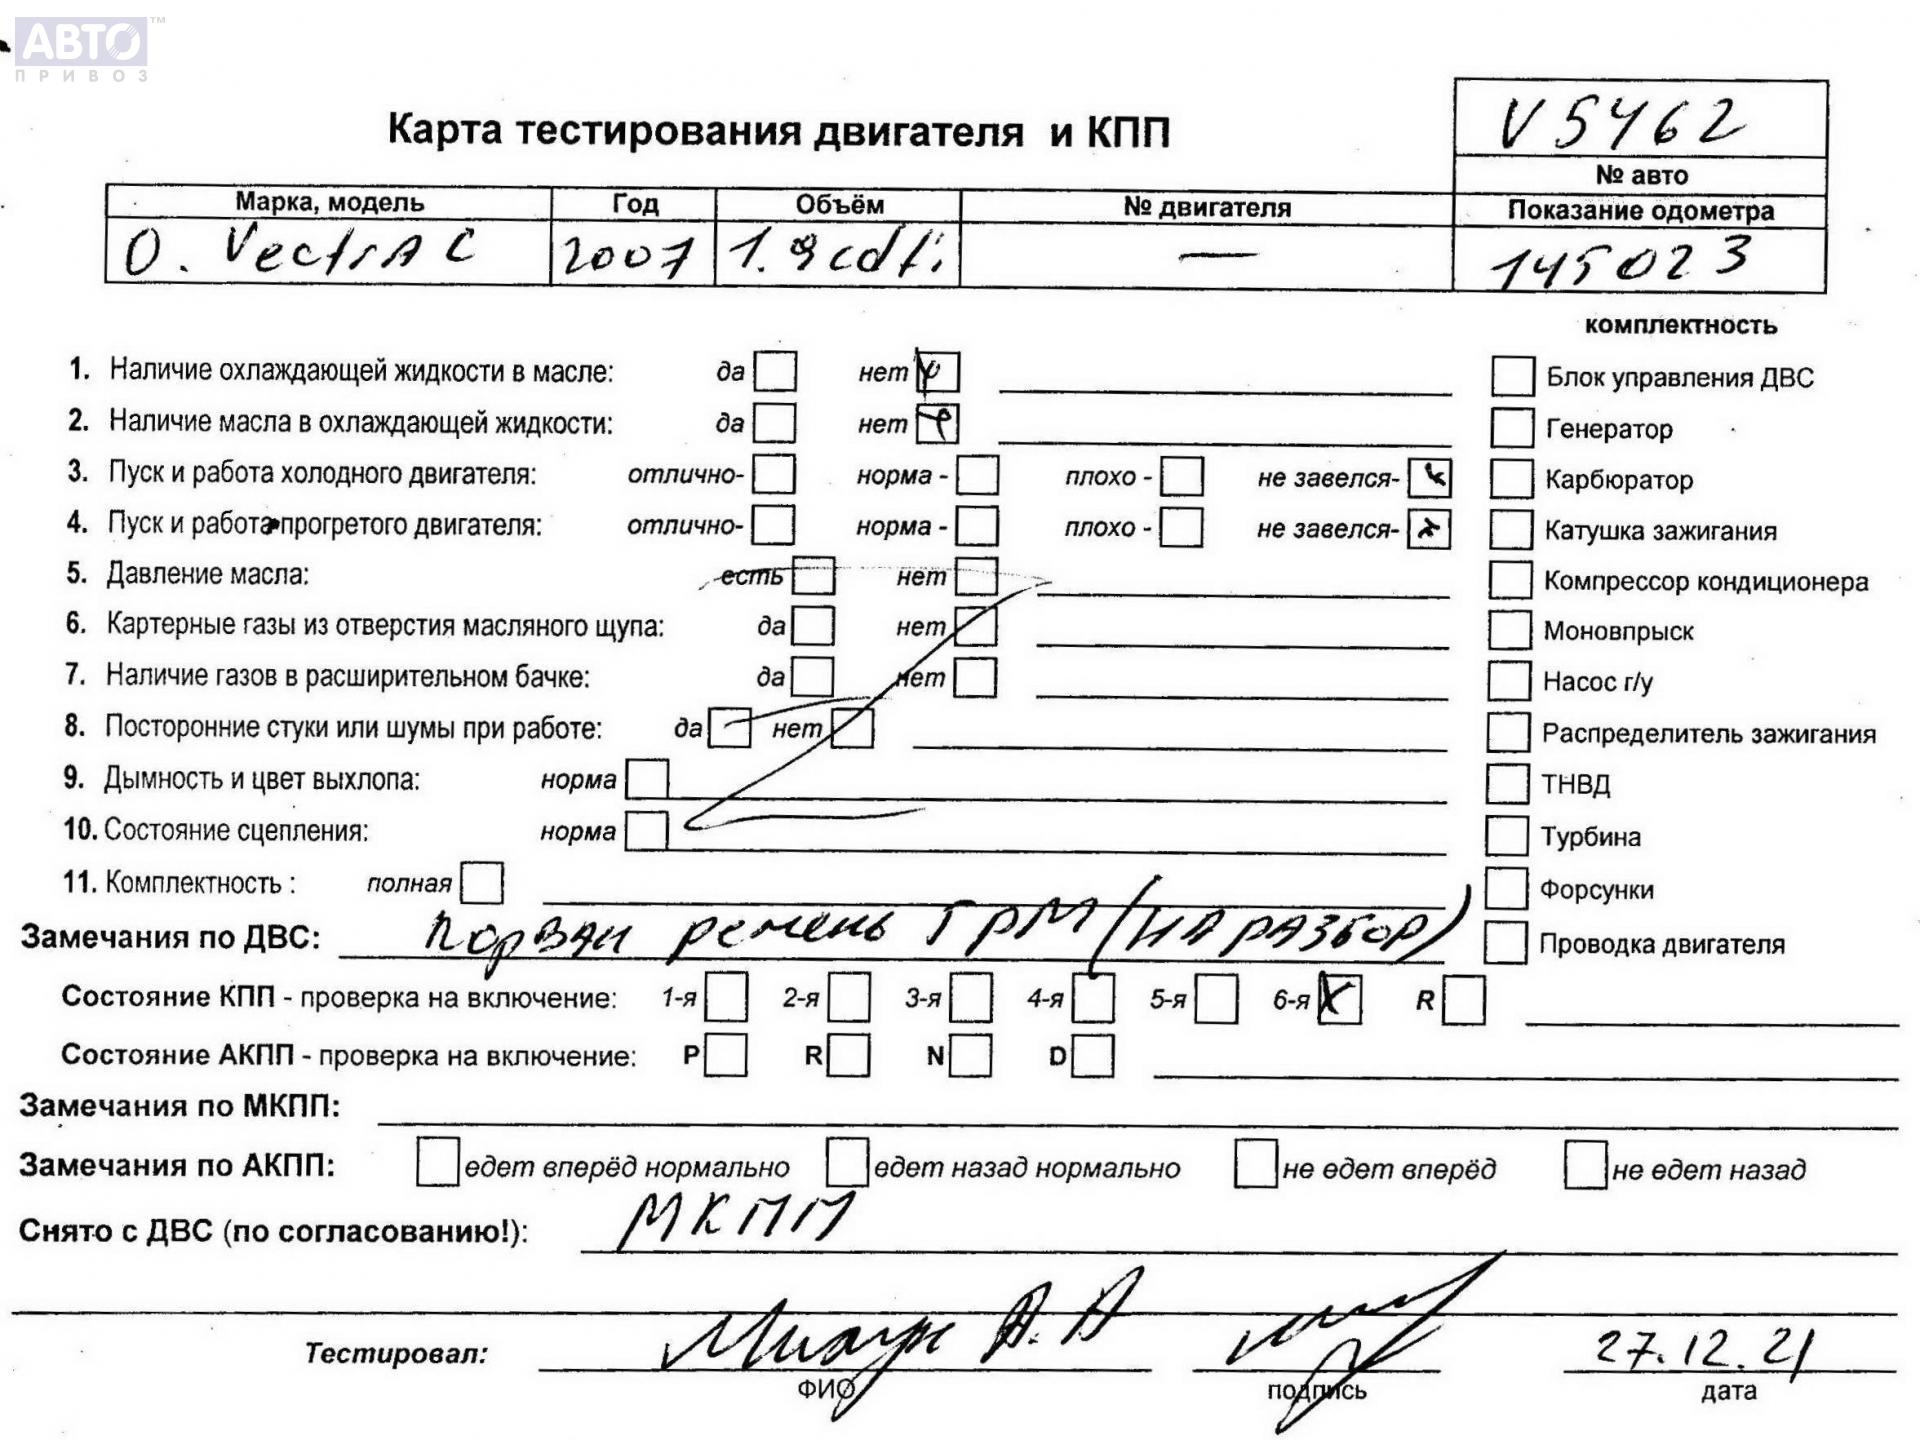 АВТО™
ПРИВОЗ
V5462
Карта тестирования двигателя и КПП
№ авто
Марка, модель Год Объём № двигателя Показание одометра
O. VectrA C 2007 1.9 cdti — 145023
комплектность
1. Наличие охлаждающей жидкости в масле: да нет Блок управления ДВС
2. Наличие масла в охлаждающей жидкости: да нет Генератор
3. Пуск и работа холодного двигателя: отлично- норма - плохо - не завелся- Карбюратор
4. Пуск и работа прогретого двигателя: отлично- норма - плохо - не завелся- Катушка зажигания
5. Давление масла: есть нет Компрессор кондиционера
6. Картерные газы из отверстия масляного щупа: да нет Моновпрыск
7. Наличие газов в расширительном бачке: да нет Насос г/у
8. Посторонние стуки или шумы при работе: да нет Распределитель зажигания
9. Дымность и цвет выхлопа: норма ТНВД
10. Состояние сцепления: норма Турбина
11. Комплектность : полная Форсунки
Замечания по ДВС: порван ремень ГРМ (НА РАЗБОР) Проводка двигателя
Состояние КПП - проверка на включение: 1-я 2-я 3-я 4-я 5-я 6-я R
Состояние АКПП - проверка на включение: P R N D
Замечания по МКПП:
Замечания по АКПП: едет вперёд нормально едет назад нормально не едет вперёд не едет назад
Снято с ДВС (по согласованию!): МКПП
Тестировал: А. А 27.12.21
ФИО подпись дата